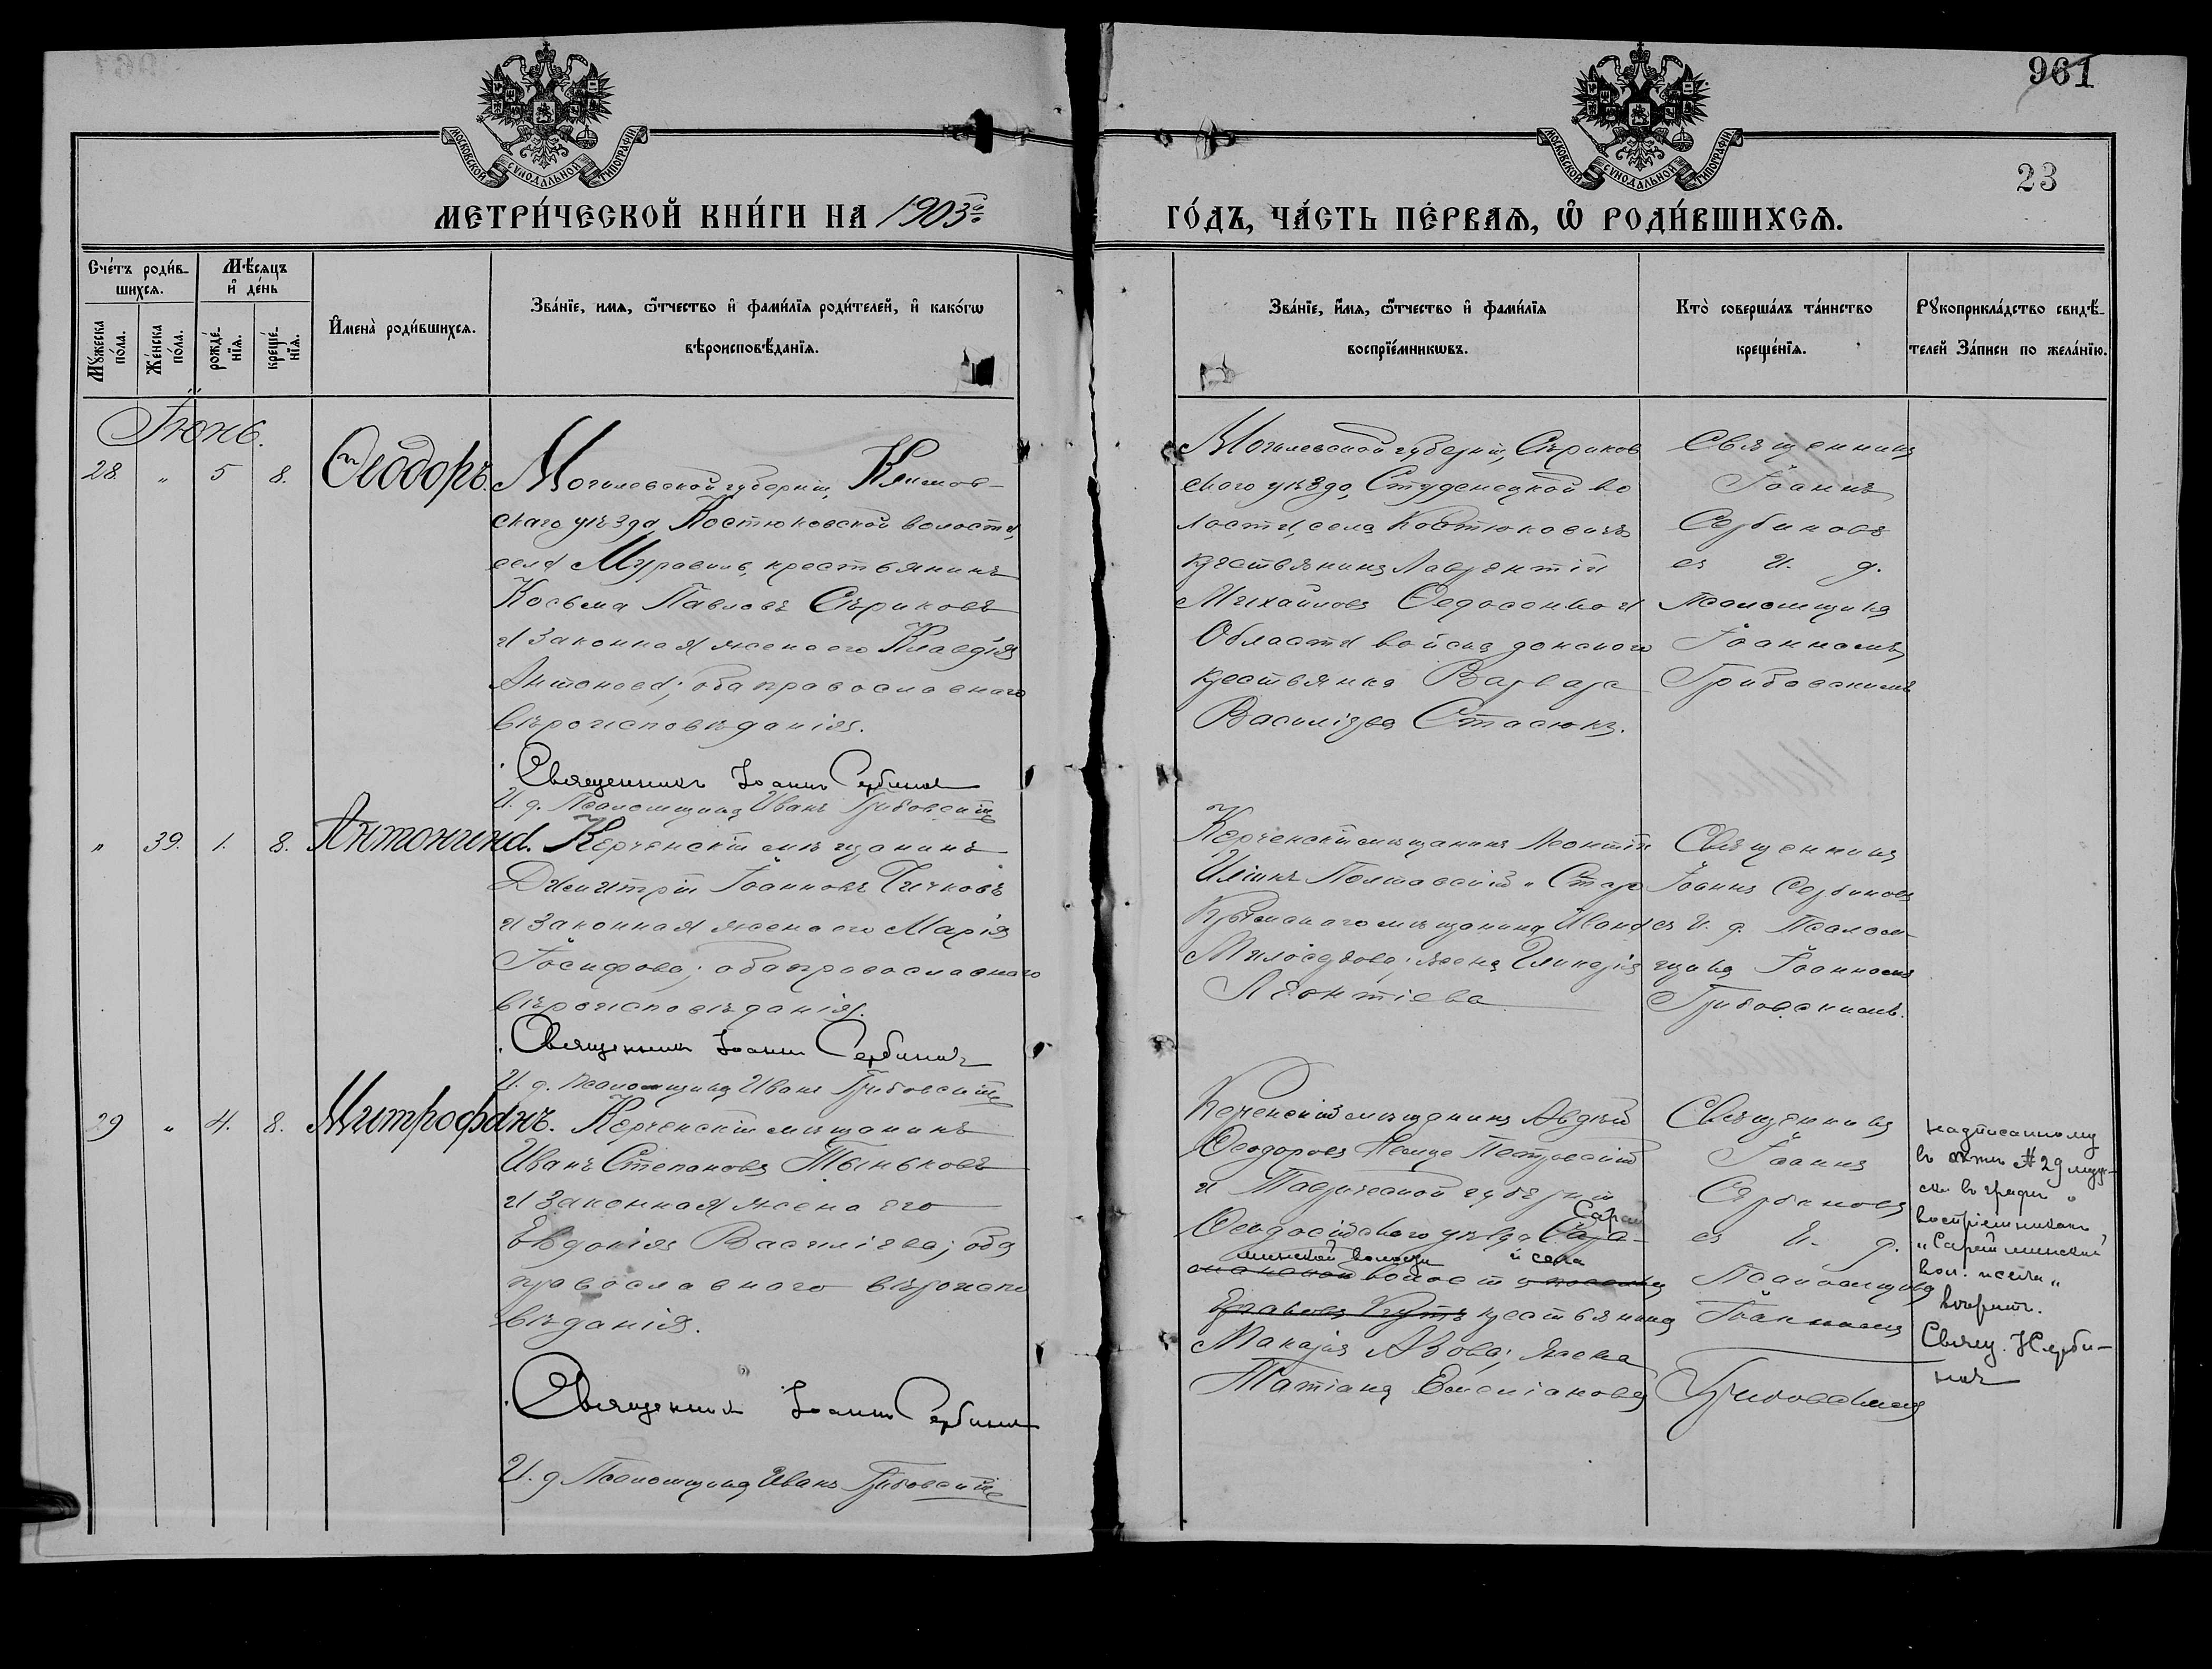 961
23
МОСКОВСКОЙ СѴНОДАЛЬНОЙ ТИПОГРАФІИ
МОСКОВСКОЙ СѴНОДАЛЬНОЙ ТИПОГРАФІИ
МЕТРИ́ЧЕСКОЙ КНИ́ГИ НА 1903й
ГО́ДЪ, ЧА́СТЬ ПЕ́РВАѦ, Ѡ҆ РОДИ́ВШИХСѦ.
Сче́тъ роди́в-
шихсѧ.
Мꙋ́жеска по́ла.
Же́нска по́ла.
Мѣ́сѧцъ
и҆ де́нь
рожде́-
нїѧ.
креще́-
нїѧ.
И҆мена̀ роди́вшихсѧ.
Зва́нїе, имѧ, ѻ҆́тчество и҆ фами́лїѧ роди́телей, и҆ како́гѡ
вѣроисповѣ́данїѧ.
Зва́нїе, и҆́мѧ, ѻ҆́тчество и҆ фами́лїѧ
воспрїе́мникѡвъ.
Кто̀ соверша́лъ та́инство
креще́нїѧ.
Рꙋкоприкла́дство свидѣ́-
телей За́писи по жела́нїю.
Іюнь.
28. " 5 8. Ѳеодоръ.
Могилевской губерніи, Климов-
скаго уѣзда, Костюковской волости,
села Муравиль, крестьянинъ
Косьма Павловъ Сѣриковъ
и законная жена его Клавдія
Антонова; оба православнаго
вѣроисповѣданія.
Священникъ Іоаннъ Сербиновъ
И. д. Псаломщика Иванъ Грибовскій
Могилевской губерніи, Сѣриков
скаго уѣзда, Студенецкой во
лости, села Костюковичъ
крестьянинъ Лаврентій
Михайловъ Федосенко и
Области войска донского
крестьянка Варвара
Василіева Стасюкъ.
Священникъ
Іоаннъ
Сербиновъ
съ И. д.
Псаломщика
Іоанномъ
Грибовскимъ
" 39. 1. 8. Антонина.
Керченскій мѣщанинъ
Димитрій Іоанновъ Чичковъ
и законная жена его Марія
Іосифова; оба православнаго
вѣроисповѣданія.
Священникъ Іоаннъ Сербиновъ
И. д. Псаломщика Иванъ Грибовскій
Керченскій мѣщанинъ Леонтій
Иліинъ Полтавскій и Старо
Крымскаго мѣщанина Ивана
Милосердова, жена Гликерія
Леонтіева
Священникъ
Іоаннъ Сербиновъ
съ И. д. Псалом
щика Іоанномъ
Грибовскимъ.
29 " 4. 8. Митрофанъ.
Керченскій мѣщанинъ
Иванъ Степановъ Тыньковъ
и законная жена его
Евдокія Василіева; оба
православнаго вѣроиспо
вѣданія.
Священникъ Іоаннъ Сербиновъ
И. д. Псаломщика Иванъ Грибовскій
Керченскій мѣщанинъ Авдѣй
Ѳеодоровъ Петровскій
и Таврической губерніи
Ѳеодосійскаго уѣзда Сарай
минской волости и села
волости
крестьянина
Макарія Азова, жена
Татіана Емеліанова
Священникъ
Іоаннъ
Сербиновъ
съ И. д.
Псаломщика
Іоанномъ
Грибовскимъ
Надписанному
въ актѣ № 29 муж-
ск. въ графѣ "
воспріемниковъ
"Сарайминской
вол. и села"
вѣрить.
Свящ. І Серби-
новъ